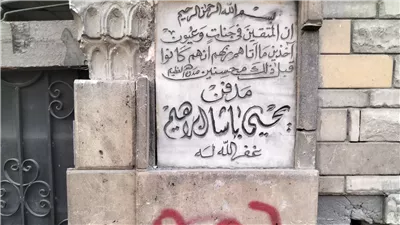 بسم الله الرحمن الرحيم
ان المتقين في جنات وعيون
آخذين ما آتاهم ربهم انهم كانوا
قبل ذلك محسنين صدق الله العظيم
مدفن
يحيى باشا ابراهيم
غفر الله له